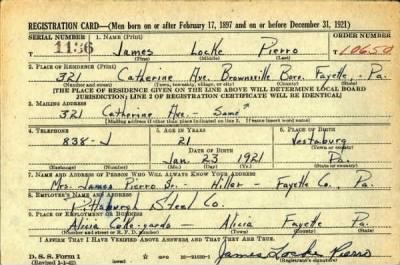 REGISTRATION CARD—(Men born on or after February 17, 1897 and on or before December 31, 1921)
SERIAL NUMBER 1. NAME (Print) ORDER NUMBER
T 1156 James Locke Pierro T 10650
(First) (Middle) (Last)
2. PLACE OF RESIDENCE (Print)
321 Catherine Ave. Brownsville Boro, Fayette, Pa.
(Number and street) (Town, township, village, or city) (County) (State)
[THE PLACE OF RESIDENCE GIVEN ON THE LINE ABOVE WILL DETERMINE LOCAL BOARD
JURISDICTION; LINE 2 OF REGISTRATION CERTIFICATE WILL BE IDENTICAL]
3. MAILING ADDRESS
321 Catherine Ave. — Same
[Mailing address if other than place indicated on line 2. If same insert word same]
4. TELEPHONE 5. AGE IN YEARS 6. PLACE OF BIRTH
838-J 21 Vestaburg
DATE OF BIRTH (Town or county)
Jan. 23 1921 Pa.
(Exchange) (Number) (Mo.) (Day) (Yr.) (State or country)
7. NAME AND ADDRESS OF PERSON WHO WILL ALWAYS KNOW YOUR ADDRESS
Mrs. James Pierro Sr. — Hiller — Fayette Co., Pa.
8. EMPLOYER'S NAME AND ADDRESS
Pittsburgh Steel Co.
9. PLACE OF EMPLOYMENT OR BUSINESS
Alicia Coke-yards — Alicia Fayette Pa.
(Number and street or R. F. D. number) (Town) (County) (State)
I AFFIRM THAT I HAVE VERIFIED ABOVE ANSWERS AND THAT THEY ARE TRUE.
D. S. S. Form 1
(Revised 1-1-42) (over)
James Locke Pierro
(Registrant's signature)